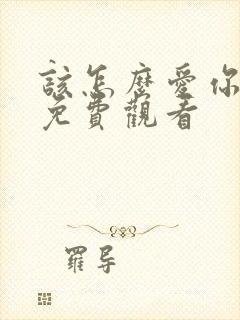 該怎麼愛你
免費觀看
羅導